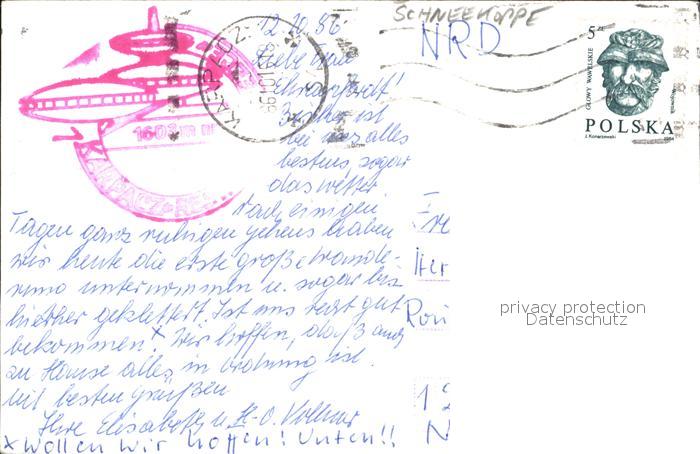 SCHNEEKOPPE
12.10.86
NRD
KARPACZ
5 ZŁ
GŁOWY WAWELSKIE
POLSKA
1603 m n
KARPACZ
Liebe
Ehrhardt!
Bisher ist
bei uns alles
bestens, sogar
das Wetter
Nach einigen
Tagen ganz ruhigen Gehens haben
wir heute die erste große Wande-
rung unternommen u. sogar bis
hierher geklettert. Ist uns recht gut
bekommen.x Wir hoffen, daß auch
zu Hause alles in Ordnung ist.
Mit besten Grüßen
Ihre Elisabeth u. H.-O. Vollmar
x Wollen wir hoffen! Unten!!
privacy protection
Datenschutz